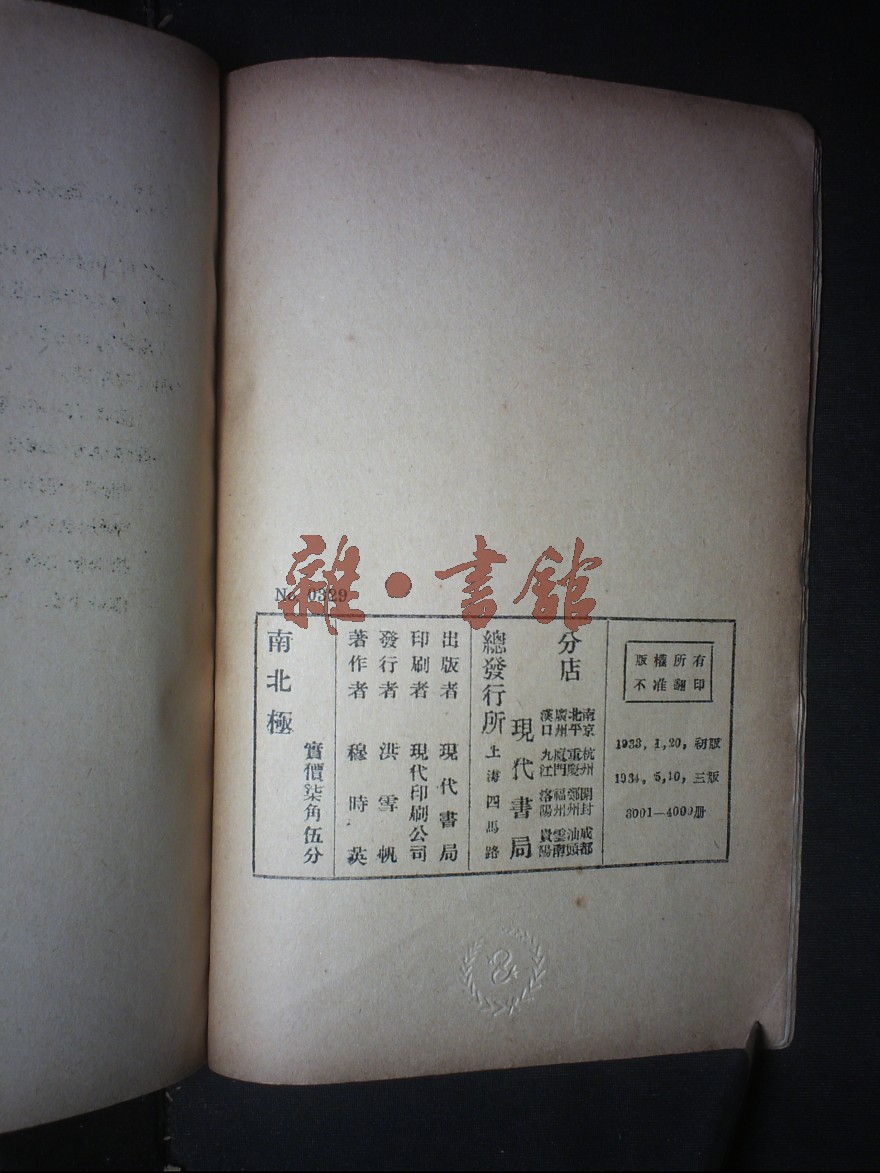 No. 0329
雜·書館
版權所有
不准翻印
1933, 1, 20, 初版
1934, 5, 10, 三版
3001—4000册
分店
南京 杭州 開封 成都
北平 重慶 鄭州 汕頭
廣州 廈門 福州 雲南
漢口 九江 洛陽 貴陽
現代書局
總發行所 上海四馬路
出版者 現代書局
印刷者 現代印刷公司
發行者 洪雪帆
著作者 穆時英
實價柒角伍分
南北極